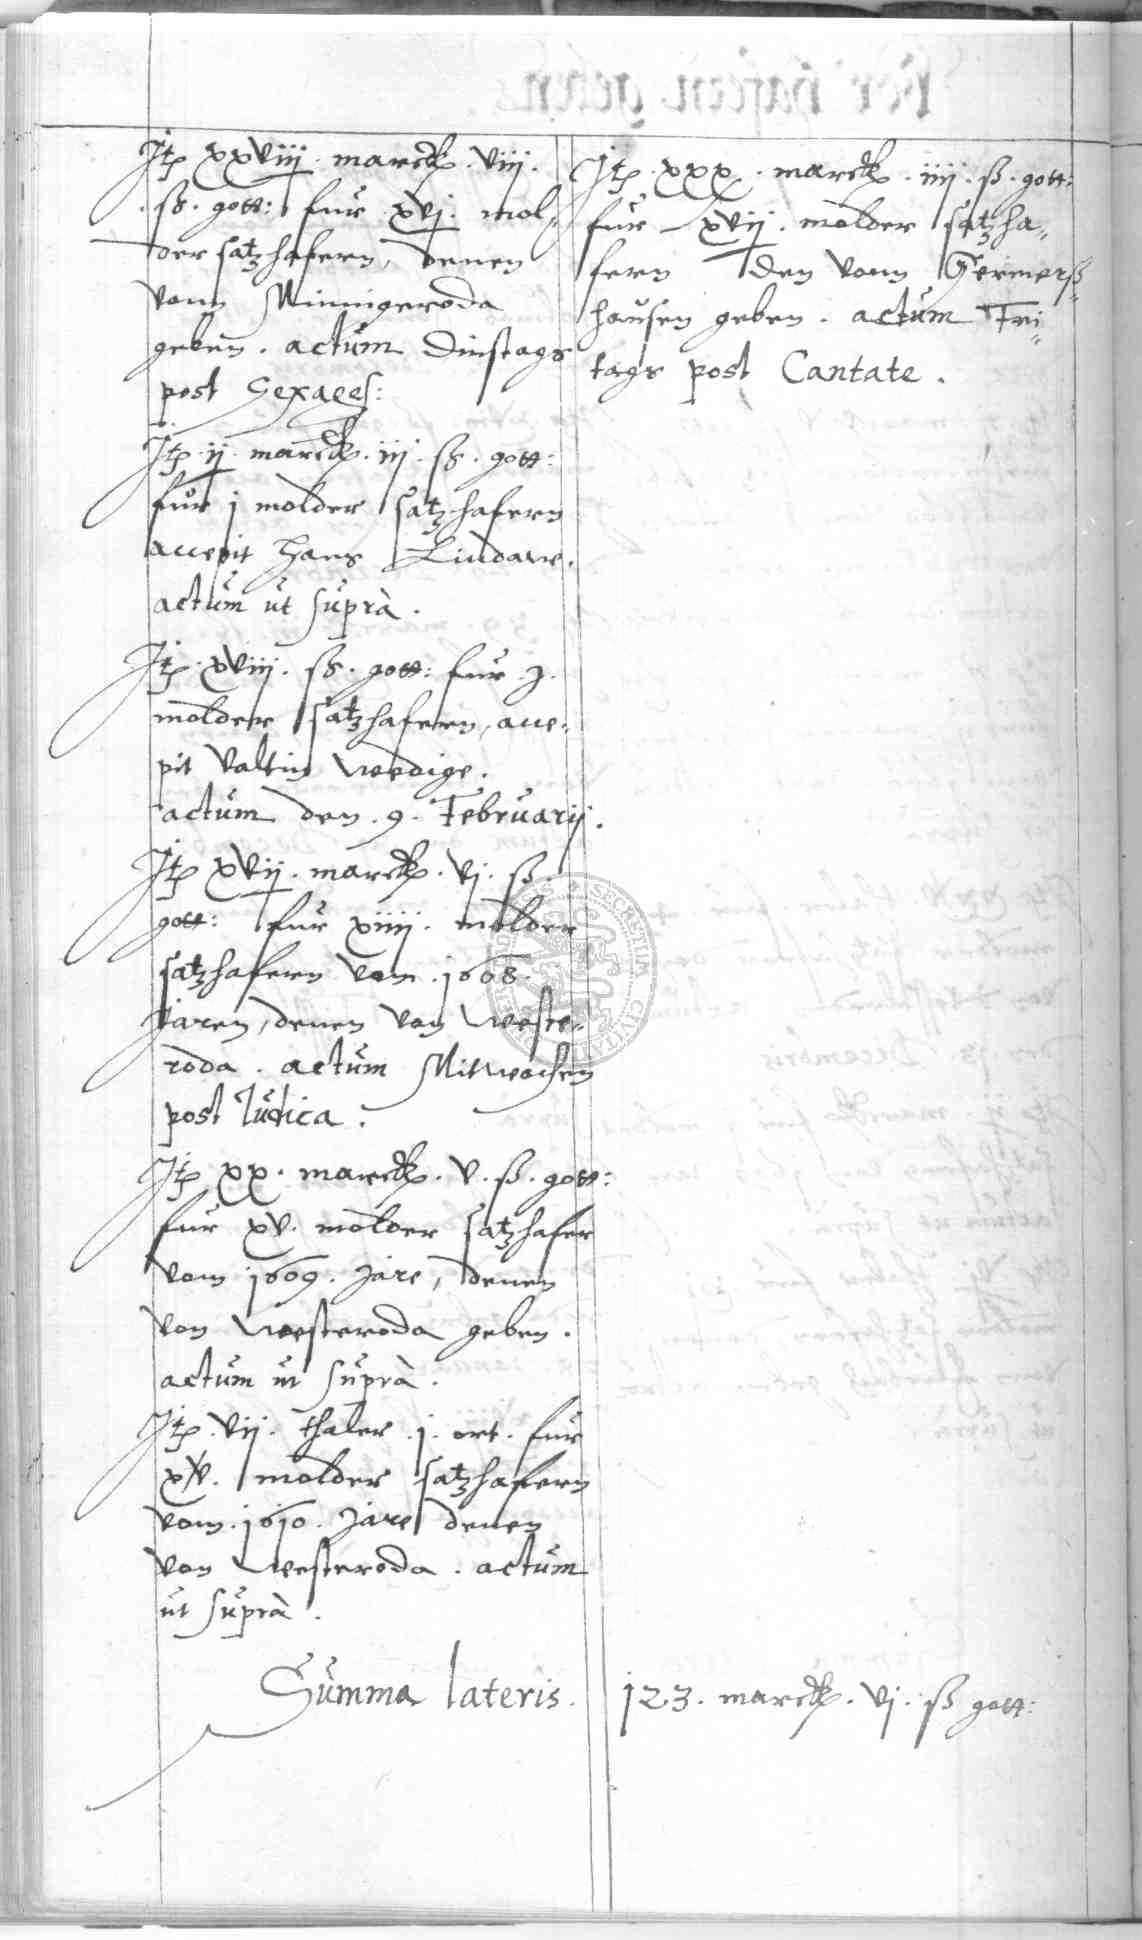 Jtꝫ xxviij. marck. viij.
. ß. gott: fur xvj. mol-
der satzhafern, denen
vonn Minnigeroda
geben. actum Dinstags
post Sexages:
Jtꝫ. ij. marck. iij. ß. gott:
fur j molder satzhafern
accepit Hans Lindaw.
actum ut suprà.
Jtꝫ. xviij. ß. gott: fur. j.
molder satzhafern, acce-
pit Valtin Wedige.
actum den. 9. Februarij.
Jtꝫ xvij. marck. vj. ß.
gott: fur xiiij. molder
satzhafern vom. 1608.
Jaren, denen von Weste-
roda. actum Mitwochen
post Judica.
Jtꝫ xx. marck. v. ß. gott:
fur xv. molder satzhafer
vom 1609. Jare, denen
von Westeroda geben.
actum ut suprà.
Jtꝫ. vij. thaler. j. ort. fur
xv. molder satzhafern
vom. 1610. Jare denen
von Westeroda. actum
ut suprà.
Jtꝫ. xxx. marck. iiij. ß. gott:
fur xvij. molder satzha-
fern den vonn Germerß-
hausen geben. actum Fri-
tags post Cantate.
Summa lateris. 123. marck. vj. ß gott:
SECRETUM CIVITATIS